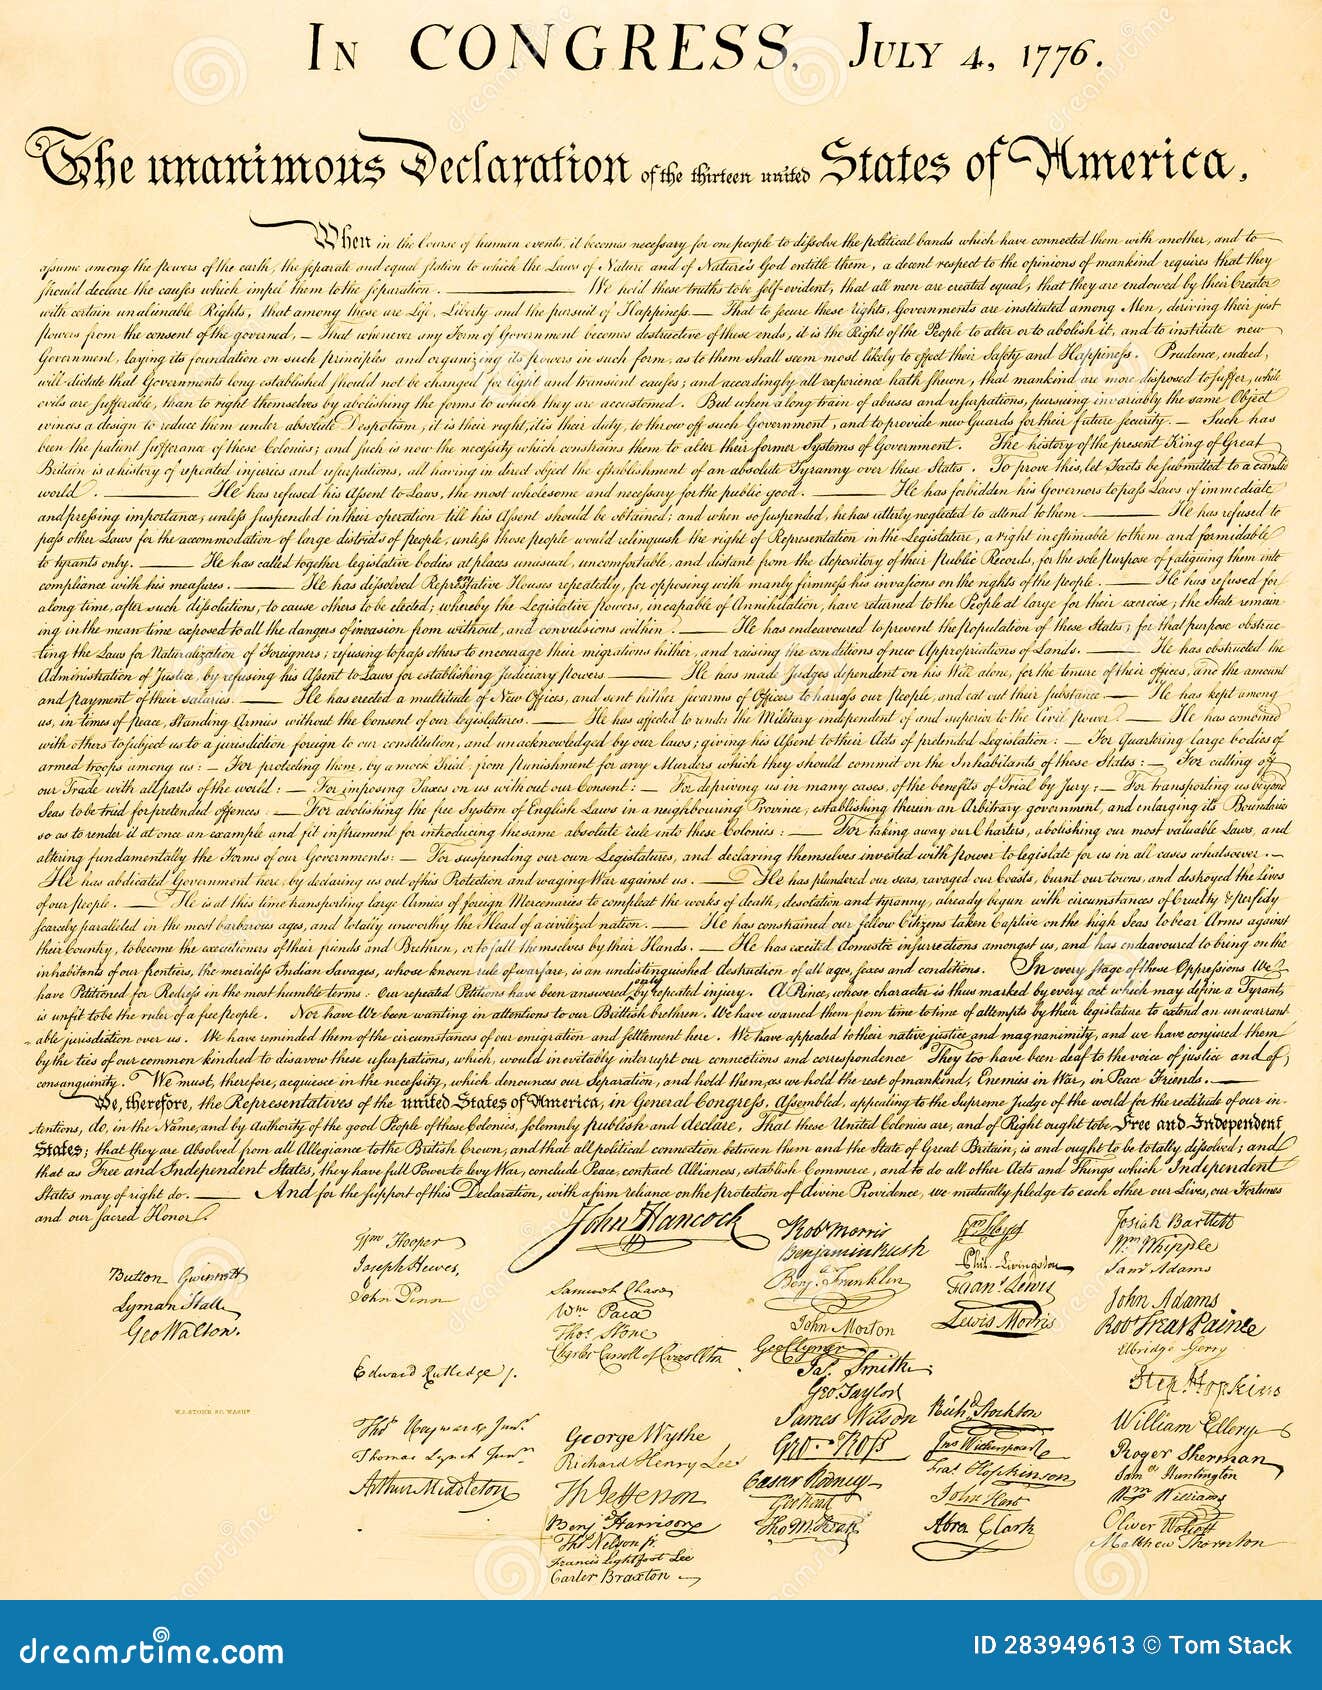 In CONGRESS, July 4, 1776.
The unanimous Declaration of the thirteen united States of America,
When in the Course of human events, it becomes necessary for one people to dissolve the political bands which have connected them with another, and to
assume among the powers of the earth, the separate and equal station to which the Laws of Nature and of Nature's God entitle them, a decent respect to the opinions of mankind requires that they
should declare the causes which impel them to the separation. We hold these truths to be self-evident, that all men are created equal, that they are endowed by their Creator
with certain unalienable Rights, that among these are Life, Liberty and the pursuit of Happiness.— That to secure these rights, Governments are instituted among Men, deriving their just
powers from the consent of the governed, — That whenever any Form of Government becomes destructive of these ends, it is the Right of the People to alter or to abolish it, and to institute new
Government, laying its foundation on such principles and organizing its powers in such form, as to them shall seem most likely to effect their Safety and Happiness. Prudence, indeed,
will dictate that Governments long established should not be changed for light and transient causes; and accordingly all experience hath shewn, that mankind are more disposed to suffer, while
evils are sufferable, than to right themselves by abolishing the forms to which they are accustomed. But when a long train of abuses and usurpations, pursuing invariably the same Object
evinces a design to reduce them under absolute Despotism, it is their right, it is their duty, to throw off such Government, and to provide new Guards for their future security. — Such has
been the patient sufferance of these Colonies; and such is now the necessity which constrains them to alter their former Systems of Government. The history of the present King of Great
Britain is a history of repeated injuries and usurpations, all having in direct object the establishment of an absolute Tyranny over these States. To prove this, let Facts be submitted to a candid
world. — He has refused his Assent to Laws, the most wholesome and necessary for the public good. — He has forbidden his Governors to pass Laws of immediate
and pressing importance, unless suspended in their operation till his Assent should be obtained; and when so suspended, he has utterly neglected to attend to them. — He has refused to
pass other Laws for the accommodation of large districts of people, unless those people would relinquish the right of Representation in the Legislature, a right inestimable to them and formidable
to tyrants only. — He has called together legislative bodies at places unusual, uncomfortable, and distant from the depository of their Public Records, for the sole purpose of fatiguing them into
compliance with his measures. — He has dissolved Representative Houses repeatedly, for opposing with manly firmness his invasions on the rights of the people. — He has refused for
a long time, after such dissolutions, to cause others to be elected; whereby the Legislative powers, incapable of Annihilation, have returned to the People at large for their exercise; the State remain-
ing in the mean time exposed to all the dangers of invasion from without, and convulsions within. — He has endeavoured to prevent the population of these States; for that purpose obstruc-
ting the Laws for Naturalization of Foreigners; refusing to pass others to encourage their migrations hither, and raising the conditions of new Appropriations of Lands. — He has obstructed the
Administration of Justice, by refusing his Assent to Laws for establishing Judiciary powers. — He has made Judges dependent on his Will alone, for the tenure of their offices, and the amount
and payment of their salaries. — He has erected a multitude of New Offices, and sent hither swarms of Officers to harrass our people, and eat out their substance. — He has kept among
us, in times of peace, Standing Armies without the Consent of our legislatures. — He has affected to render the Military independent of and superior to the Civil power. — He has combined
with others to subject us to a jurisdiction foreign to our constitution, and unacknowledged by our laws; giving his Assent to their Acts of pretended Legislation: — For Quartering large bodies of
armed troops among us: — For protecting them, by a mock Trial, from punishment for any Murders which they should commit on the Inhabitants of these States: — For cutting off
our Trade with all parts of the world: — For imposing Taxes on us without our Consent: — For depriving us in many cases, of the benefits of Trial by Jury: — For transporting us beyond
Seas to be tried for pretended offences — For abolishing the free System of English Laws in a neighbouring Province, establishing therein an Arbitrary government, and enlarging its Boundaries
so as to render it at once an example and fit instrument for introducing the same absolute rule into these Colonies: — For taking away our Charters, abolishing our most valuable Laws, and
altering fundamentally the Forms of our Governments: — For suspending our own Legislatures, and declaring themselves invested with power to legislate for us in all cases whatsoever. —
He has abdicated Government here, by declaring us out of his Protection and waging War against us. — He has plundered our seas, ravaged our Coasts, burnt our towns, and destroyed the lives
of our people. — He is at this time transporting large Armies of foreign Mercenaries to compleat the works of death, desolation and tyranny, already begun with circumstances of Cruelty & perfidy
scarcely paralleled in the most barbarous ages, and totally unworthy the Head of a civilized nation. — He has constrained our fellow Citizens taken Captive on the high Seas to bear Arms against
their Country, to become the executioners of their friends and Brethren, or to fall themselves by their Hands. — He has excited domestic insurrections amongst us, and has endeavoured to bring on the
inhabitants of our frontiers, the merciless Indian Savages, whose known rule of warfare, is an undistinguished destruction of all ages, sexes and conditions. In every stage of these Oppressions We
have Petitioned for Redress in the most humble terms: Our repeated Petitions have been answered only by repeated injury. A Prince, whose character is thus marked by every act which may define a Tyrant,
is unfit to be the ruler of a free people. Nor have We been wanting in attentions to our Brittish brethren. We have warned them from time to time of attempts by their legislature to extend an unwarrant-
able jurisdiction over us. We have reminded them of the circumstances of our emigration and settlement here. We have appealed to their native justice and magnanimity, and we have conjured them
by the ties of our common kindred to disavow these usurpations, which, would inevitably interrupt our connections and correspondence They too have been deaf to the voice of justice and of
consanguinity. We must, therefore, acquiesce in the necessity, which denounces our Separation, and hold them, as we hold the rest of mankind, Enemies in War, in Peace Friends. —
We, therefore, the Representatives of the united States of America, in General Congress, Assembled, appealing to the Supreme Judge of the world for the rectitude of our in-
tentions, do, in the Name, and by Authority of the good People of these Colonies, solemnly publish and declare, That these United Colonies are, and of Right ought to be Free and Independent
States; that they are Absolved from all Allegiance to the British Crown, and that all political connection between them and the State of Great Britain, is and ought to be totally dissolved; and
that as Free and Independent States, they have full Power to levy War, conclude Peace, contract Alliances, establish Commerce, and to do all other Acts and Things which Independent
States may of right do. — And for the support of this Declaration, with a firm reliance on the protection of divine Providence, we mutually pledge to each other our Lives, our Fortunes
and our sacred Honor.
Button Gwinnett
Lyman Hall
Geo Walton.
W.J. STONE SC. WASHN
Wm Hooper
Joseph Hewes,
John Penn
Edward Rutledge /.
Thos Heyward Junr.
Thomas Lynch Junr.
Arthur Middleton
John Hancock
Samuel Chase
Wm Paca
Thos Stone
Charles Carroll of Carrollton
George Wythe
Richard Henry Lee
Th Jefferson
Benj Harrison
Thos Nelson jr.
Francis Lightfoot Lee
Carter Braxton
Robt Morris
Benjamin Rush
Benj. Franklin
John Morton
Geo Clymer
Jas. Smith
Geo. Taylor
James Wilson
Geo. Ross
Caesar Rodney
Geo Read
Tho M:Kean
Wm Floyd
Phil. Livingston
Frans. Lewis
Lewis Morris
Richd. Stockton
Jno Witherspoon
Fras. Hopkinson
John Hart
Abra Clark
Josiah Bartlett
Wm Whipple
Saml Adams
John Adams
Robt Treat Paine
Elbridge Gerry
Step. Hopkins
William Ellery
Roger Sherman
Saml Huntington
Wm Williams
Oliver Wolcott
Matthew Thornton
dreamstime.com
ID 283949613 © Tom Stack